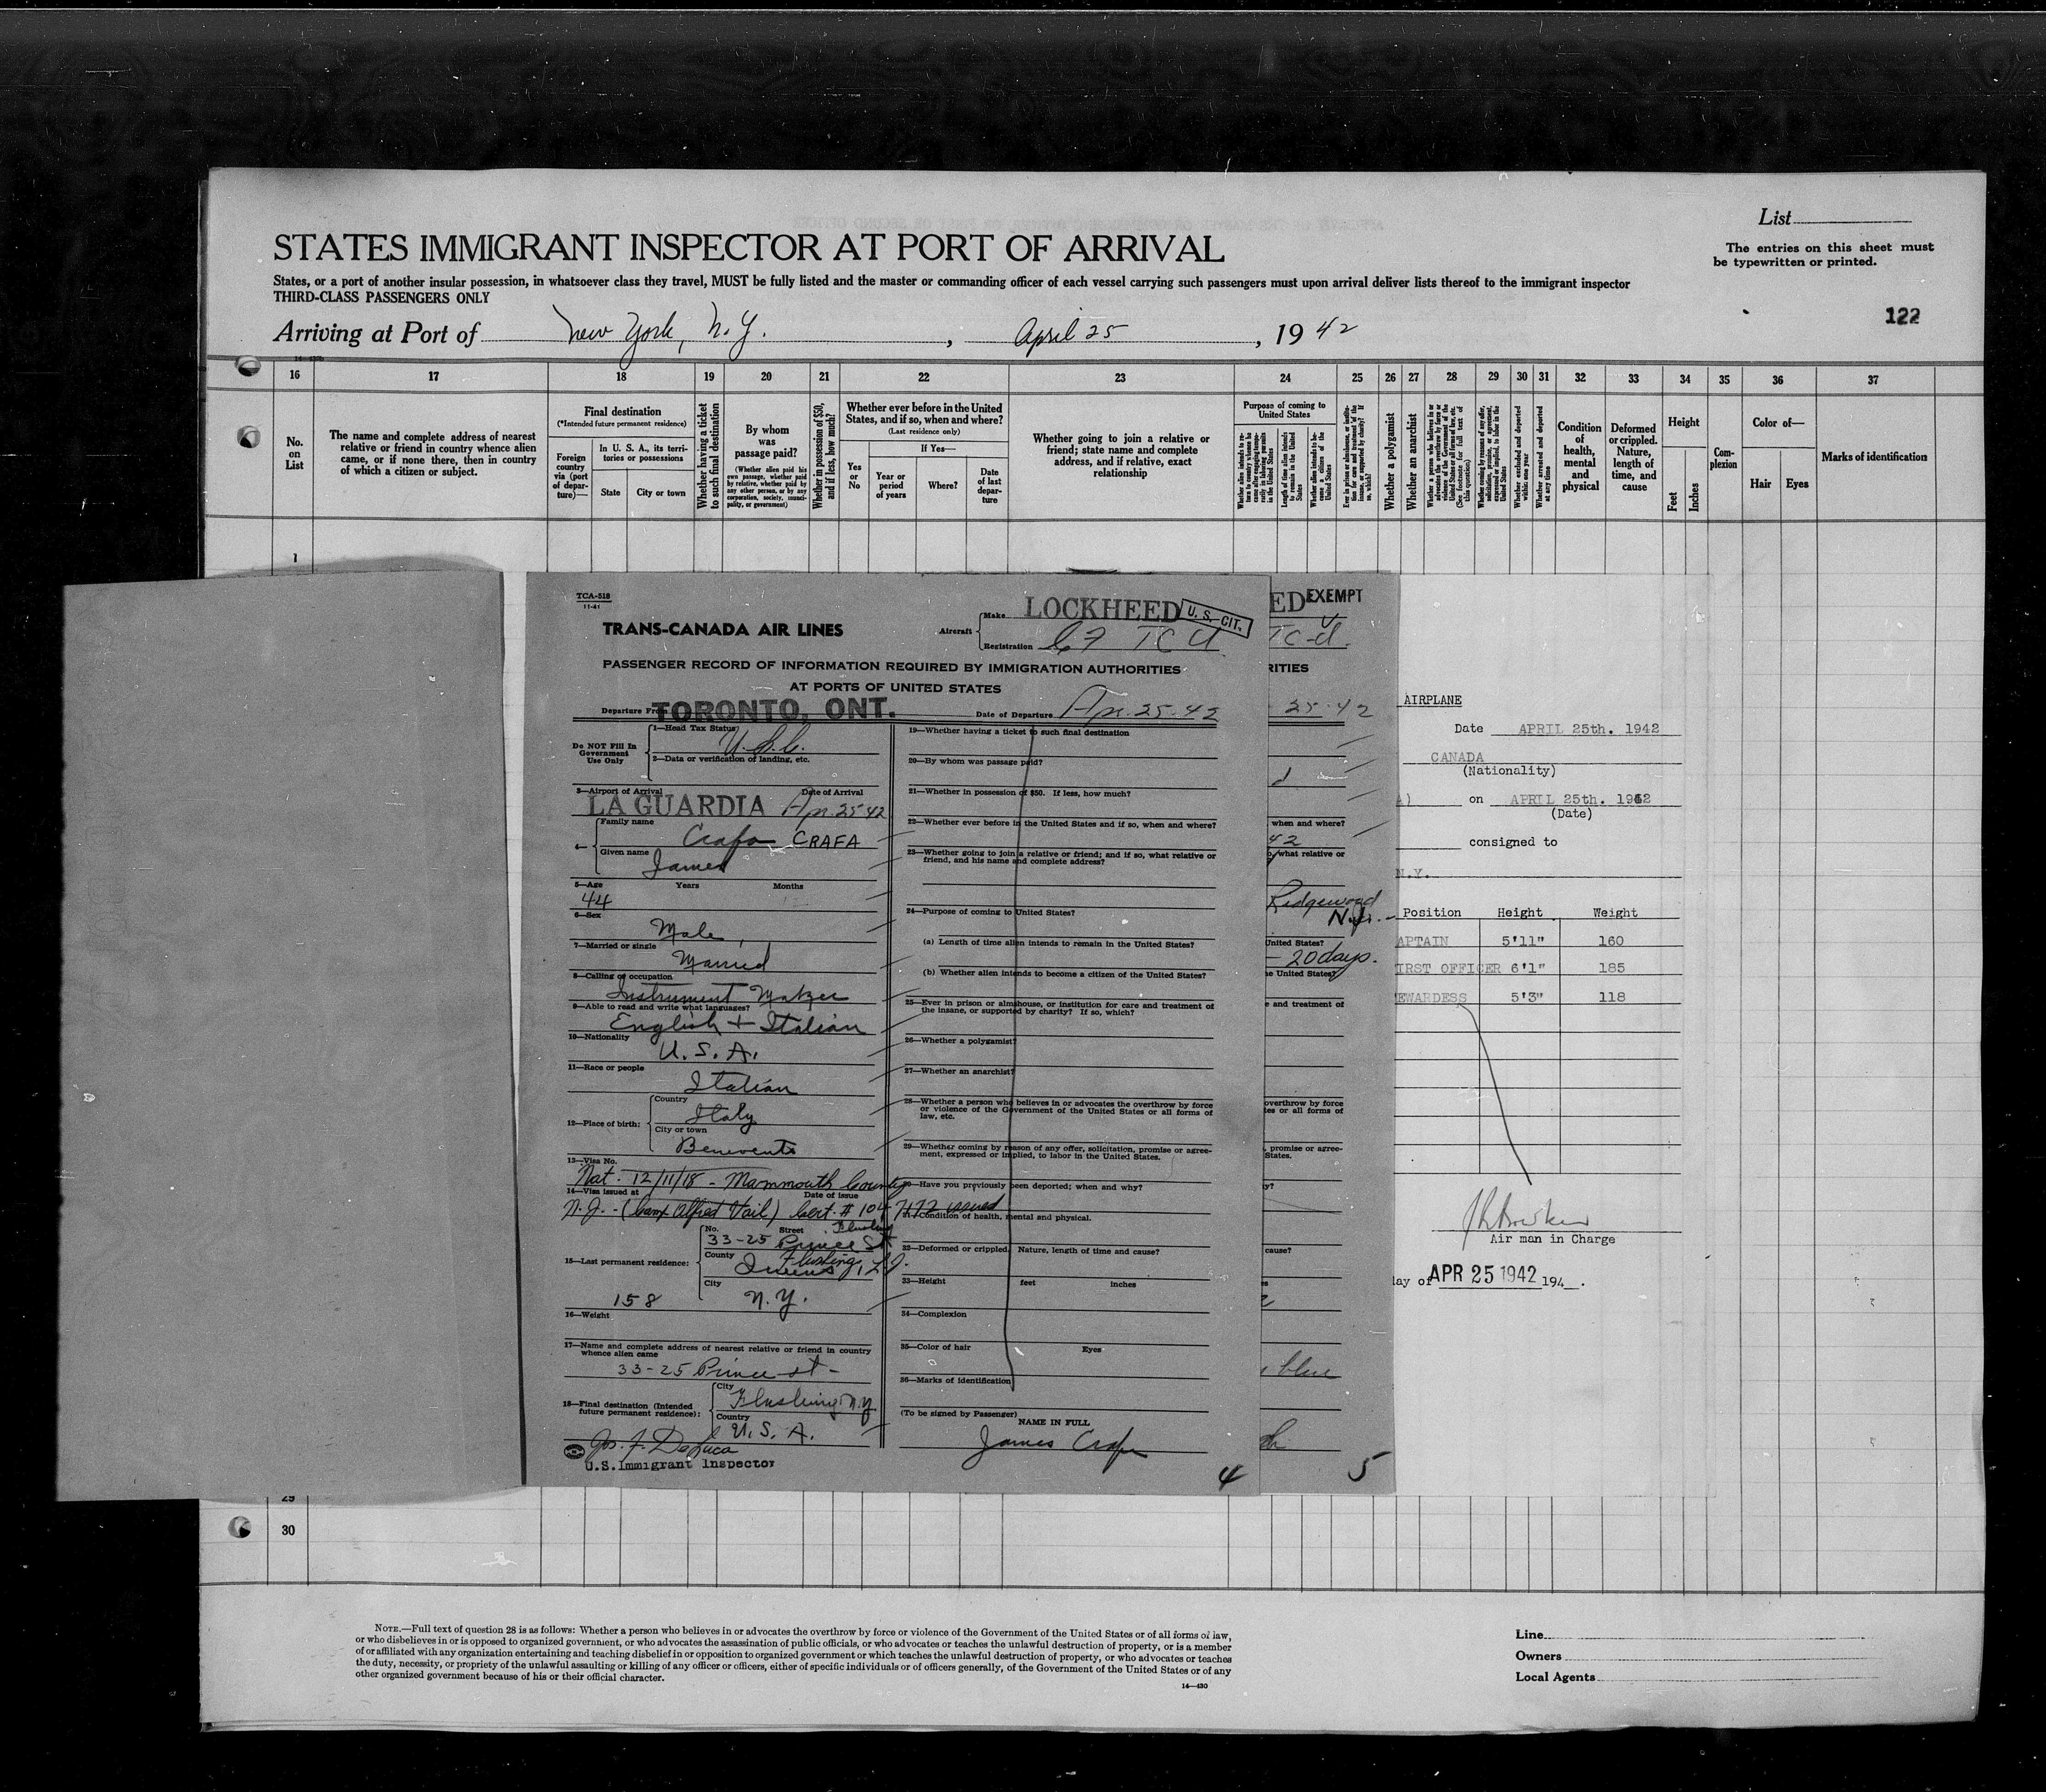 List
STATES IMMIGRANT INSPECTOR AT PORT OF ARRIVAL
The entries on this sheet must
be typewritten or printed.
States, or a port of another insular possession, in whatsoever class they travel, MUST be fully listed and the master or commanding officer of each vessel carrying such passengers must upon arrival deliver lists thereof to the immigrant inspector
THIRD-CLASS PASSENGERS ONLY
122
Arriving at Port of New York, N.Y., April 25, 1942
16 17 18 19 20 21 22 23 24 25 26 27 28 29 30 31 32 33 34 35 36 37
No. on List
The name and complete address of nearest relative or friend in country whence alien came, or if none there, then in country of which a citizen or subject.
Final destination
(*Intended future permanent residence)
Foreign country via (port of departure)—
In U. S. A., its territories or possessions
State
City or town
Whether having a ticket to such final destination
By whom was passage paid?
(Whether alien paid his own passage, whether paid by relative, whether paid by any other person, or by any corporation, society, municipality, or government)
Whether in possession of $50, and if less, how much?
Whether ever before in the United States, and if so, when and where?
(Last residence only)
Yes or No
If Yes—
Year or period of years
Where?
Date of last departure
Whether going to join a relative or friend; state name and complete address, and if relative, exact relationship
Purpose of coming to United States
Length of time alien intends to remain in the United States
Whether alien intends to become a citizen of the United States
Whether a polygamist
Whether an anarchist
Condition of health, mental and physical
Deformed or crippled. Nature, length of time, and cause
Height
Feet
Inches
Complexion
Color of—
Hair
Eyes
Marks of identification
1
TCA-518
11-41
TRANS-CANADA AIR LINES
Aircraft
Make LOCKHEED
U. S. CIT.
Registration CF TCU
PASSENGER RECORD OF INFORMATION REQUIRED BY IMMIGRATION AUTHORITIES
AT PORTS OF UNITED STATES
Departure From TORONTO, ONT. Date of Departure Apr. 25. 42
Do NOT Fill In Government Use Only
1—Head Tax Status U.S.C.
2—Data or verification of landing, etc.
3—Airport of Arrival Date of Arrival
LA GUARDIA Apr. 25 42
4— Family name Crafa CRAFA
Given name James
5—Age Years Months
44
6—Sex
Male
7—Married or single
Married
8—Calling or occupation
Instrument Maker
9—Able to read and write what languages?
English + Italian
10—Nationality
U. S. A.
11—Race or people
Italian
12—Place of birth: Country
Italy
City or town
Benevento
13—Visa No.
Nat. 12/11/18 - Mammouth County
14—Visa issued at Date of issue
N.J. - (Camp Alfred Vail) Cert. # 1047172 issued
15—Last permanent residence: No. Street
33-25 Prince St Flushing
County
Queens, Flushing, L.I.
City
N.Y.
158
16—Weight
17—Name and complete address of nearest relative or friend in country
whence alien came
33-25 Prince st -
18—Final destination (Intended future permanent residence): City
Flushing N.Y
Country
U. S. A.
Jos. F. DeLuca
U.S. Immigrant Inspector
19—Whether having a ticket to such final destination
20—By whom was passage paid?
21—Whether in possession of $50. If less, how much?
22—Whether ever before in the United States and if so, when and where?
23—Whether going to join a relative or friend; and if so, what relative or
friend, and his name and complete address?
24—Purpose of coming to United States?
(a) Length of time alien intends to remain in the United States?
(b) Whether alien intends to become a citizen of the United States?
25—Ever in prison or almshouse, or institution for care and treatment of
the insane, or supported by charity? If so, which?
26—Whether a polygamist?
27—Whether an anarchist?
28—Whether a person who believes in or advocates the overthrow by force
or violence of the Government of the United States or all forms of
law, etc.
29—Whether coming by reason of any offer, solicitation, promise or agree-
ment, expressed or implied, to labor in the United States.
30—Have you previously been deported; when and why?
31—Condition of health, mental and physical.
32—Deformed or crippled. Nature, length of time and cause?
33—Height feet inches
34—Complexion
35—Color of hair Eyes
36—Marks of identification
(To be signed by Passenger)
NAME IN FULL
James Crafa
4
ED EXEMPT
TC-U.
RITIES
25.42
when and where?
42
what relative or
Ridgewood
N.J.
United States?
- 20 days.
he United States?
e and treatment of
overthrow by force
tes or all forms of
, promise or agree-
States.
y?
cause?
blue
5
AIRPLANE
Date APRIL 25th. 1942
CANADA
(Nationality)
A) on APRIL 25th. 1942
(Date)
consigned to
N.Y.
Position Height Weight
APTAIN 5'11" 160
IRST OFFICER 6'1" 185
EWARDESS 5'3" 118
Air man in Charge
lay of APR 25 1942 194 .
29
30
NOTE.—Full text of question 28 is as follows: Whether a person who believes in or advocates the overthrow by force or violence of the Government of the United States or of all forms of law,
or who disbelieves in or is opposed to organized government, or who advocates the assassination of public officials, or who advocates or teaches the unlawful destruction of property, or is a member
of or affiliated with any organization entertaining and teaching disbelief in or opposition to organized government or which teaches the unlawful destruction of property, or who advocates or teaches
the duty, necessity, or propriety of the unlawful assaulting or killing of any officer or officers, either of specific individuals or of officers generally, of the Government of the United States or of any
other organized government because of his or their official character.
14—430
Line
Owners
Local Agents